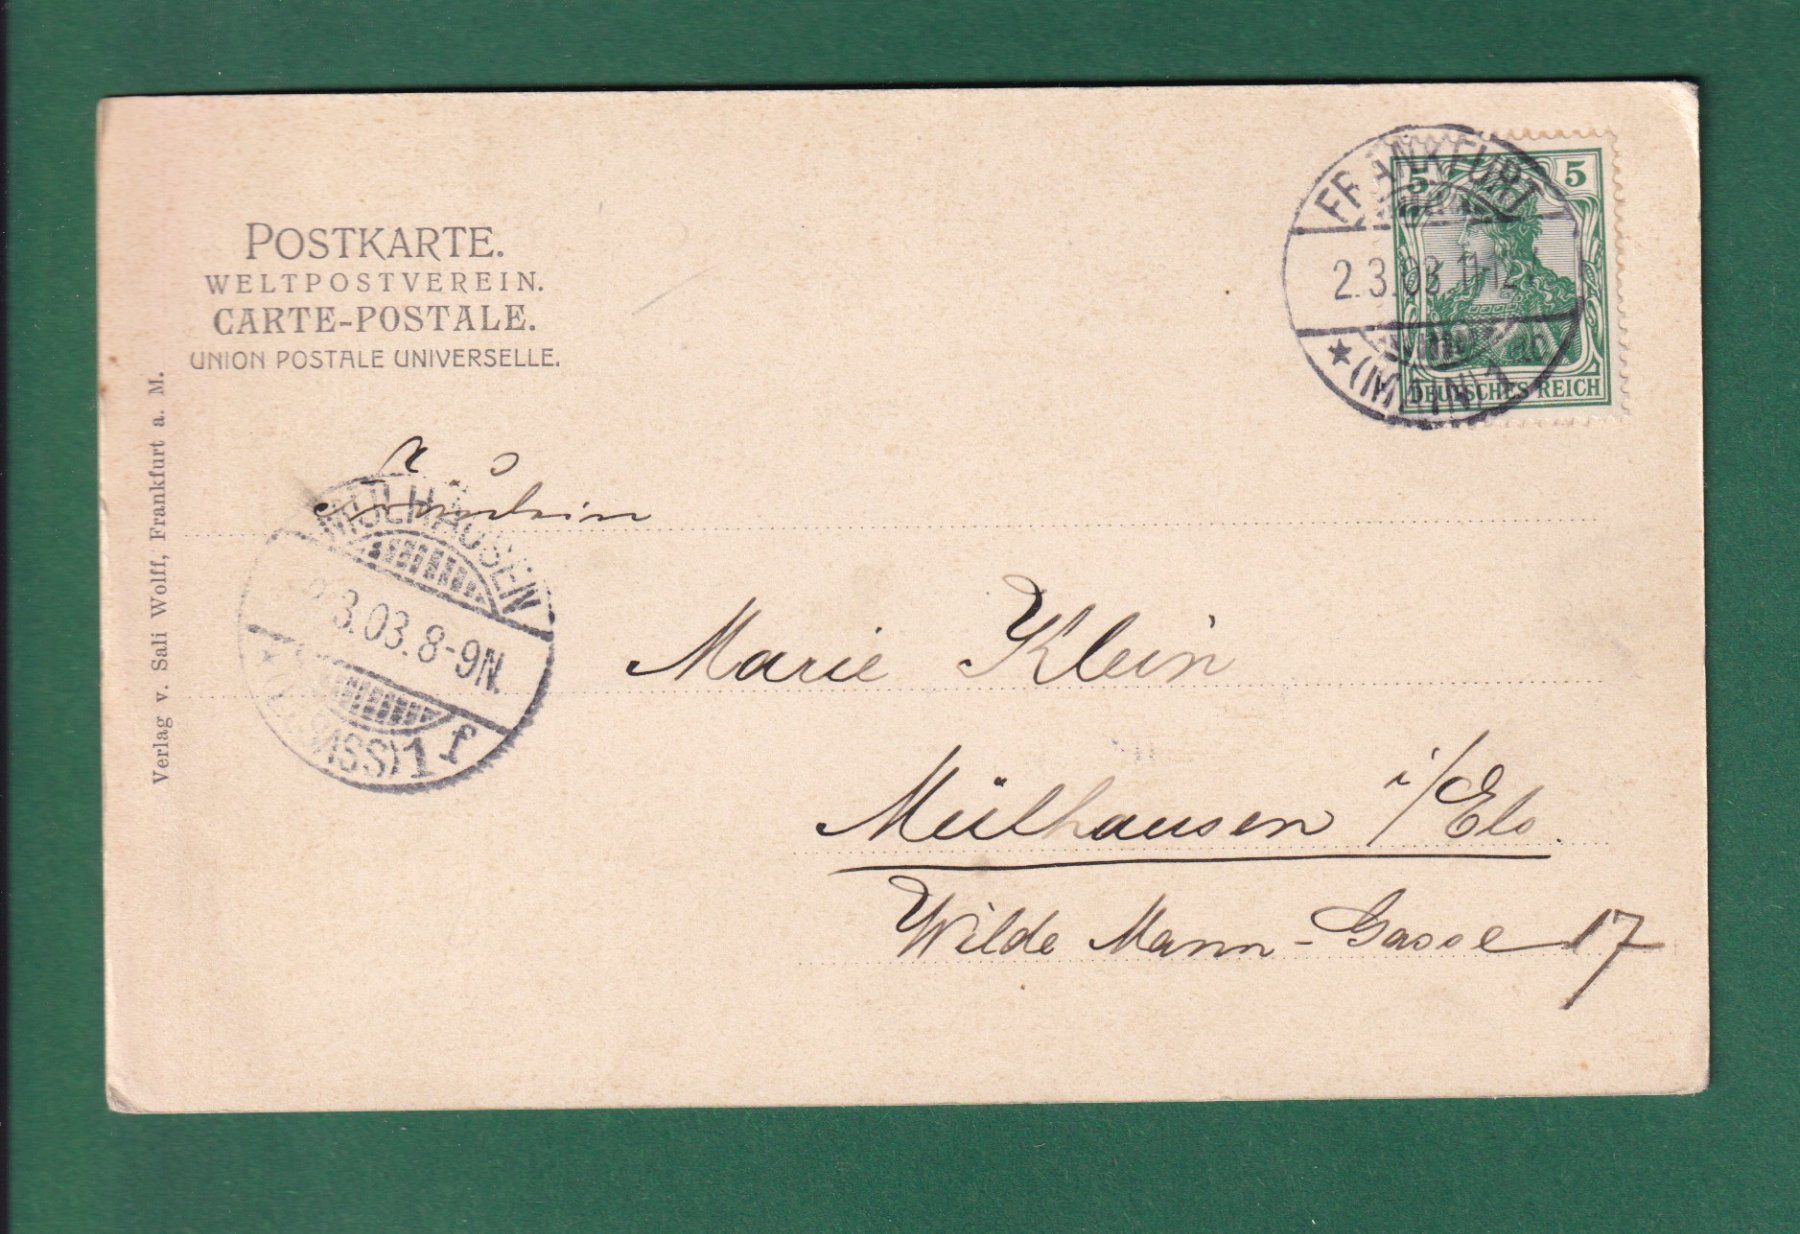 POSTKARTE.
WELTPOSTVEREIN.
CARTE-POSTALE.
UNION POSTALE UNIVERSELLE.
5 5
DEUTSCHES REICH
FRANKFURT
2.3.03
★ (MAIN) 1
Verlag v. Sali Wolff, Frankfurt a. M.
Fräulein
MÜLHAUSEN
3.03. 8-9N.
1 f
Marie Klein
Mülhausen i/Els.
Wilde Mann-Gasse 17